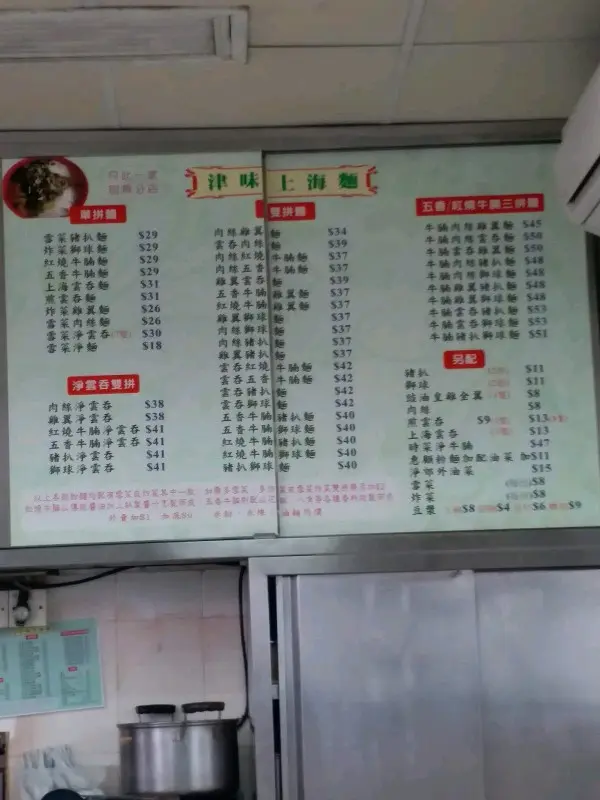 津味上海麵
單拼麵
雪菜豬扒麵 $29
炸菜獅球麵 $29
紅燒牛腩麵 $29
五香牛腩麵 $29
上海雲吞麵 $31
煎雲吞麵 $31
炸菜雞翼麵 $26
雪菜肉絲麵 $26
雪菜淨雲吞 $30
雪菜淨麵 $18
淨雲吞雙拼
肉絲淨雲吞 $38
雞翼淨雲吞 $38
紅燒牛腩淨雲吞 $41
五香牛腩淨雲吞 $41
豬扒淨雲吞 $41
獅球淨雲吞 $41
雙拼麵
肉絲雞翼麵 $34
雲吞肉絲麵 $39
肉絲紅燒牛腩麵 $37
肉絲五香牛腩麵 $37
雞翼雲吞麵 $39
五香牛腩雞翼麵 $37
紅燒牛腩雞翼麵 $37
雞翼獅球麵 $37
肉絲獅球麵 $37
肉絲豬扒麵 $37
雞翼豬扒麵 $37
雲吞紅燒牛腩麵 $42
雲吞五香牛腩麵 $42
雲吞豬扒麵 $42
雲吞獅球麵 $42
五香牛腩豬扒麵 $40
五香牛腩獅球麵 $40
紅燒牛腩豬扒麵 $40
紅燒牛腩獅球麵 $40
豬扒獅球麵 $40
五香/紅燒牛腩三拼麵
牛腩肉絲雞翼麵 $45
牛腩肉絲雲吞麵 $50
牛腩雞翼雲吞麵 $50
牛腩肉絲豬扒麵 $48
牛腩肉絲獅球麵 $48
牛腩雞翼豬扒麵 $48
牛腩雞翼獅球麵 $48
牛腩雲吞豬扒麵 $53
牛腩雲吞獅球麵 $53
牛腩豬扒獅球麵 $51
另配
豬扒 $11
獅球 $11
豉油皇雞全翼 $8
肉絲 $8
煎雲吞 $9 $13
上海雲吞 $13
時菜淨牛腩 $47
意麵拚麵加配油菜 加$11
淨郊外油菜 $15
雪菜 $8
炸菜 $8
豆漿 $8 $4 $6 $9